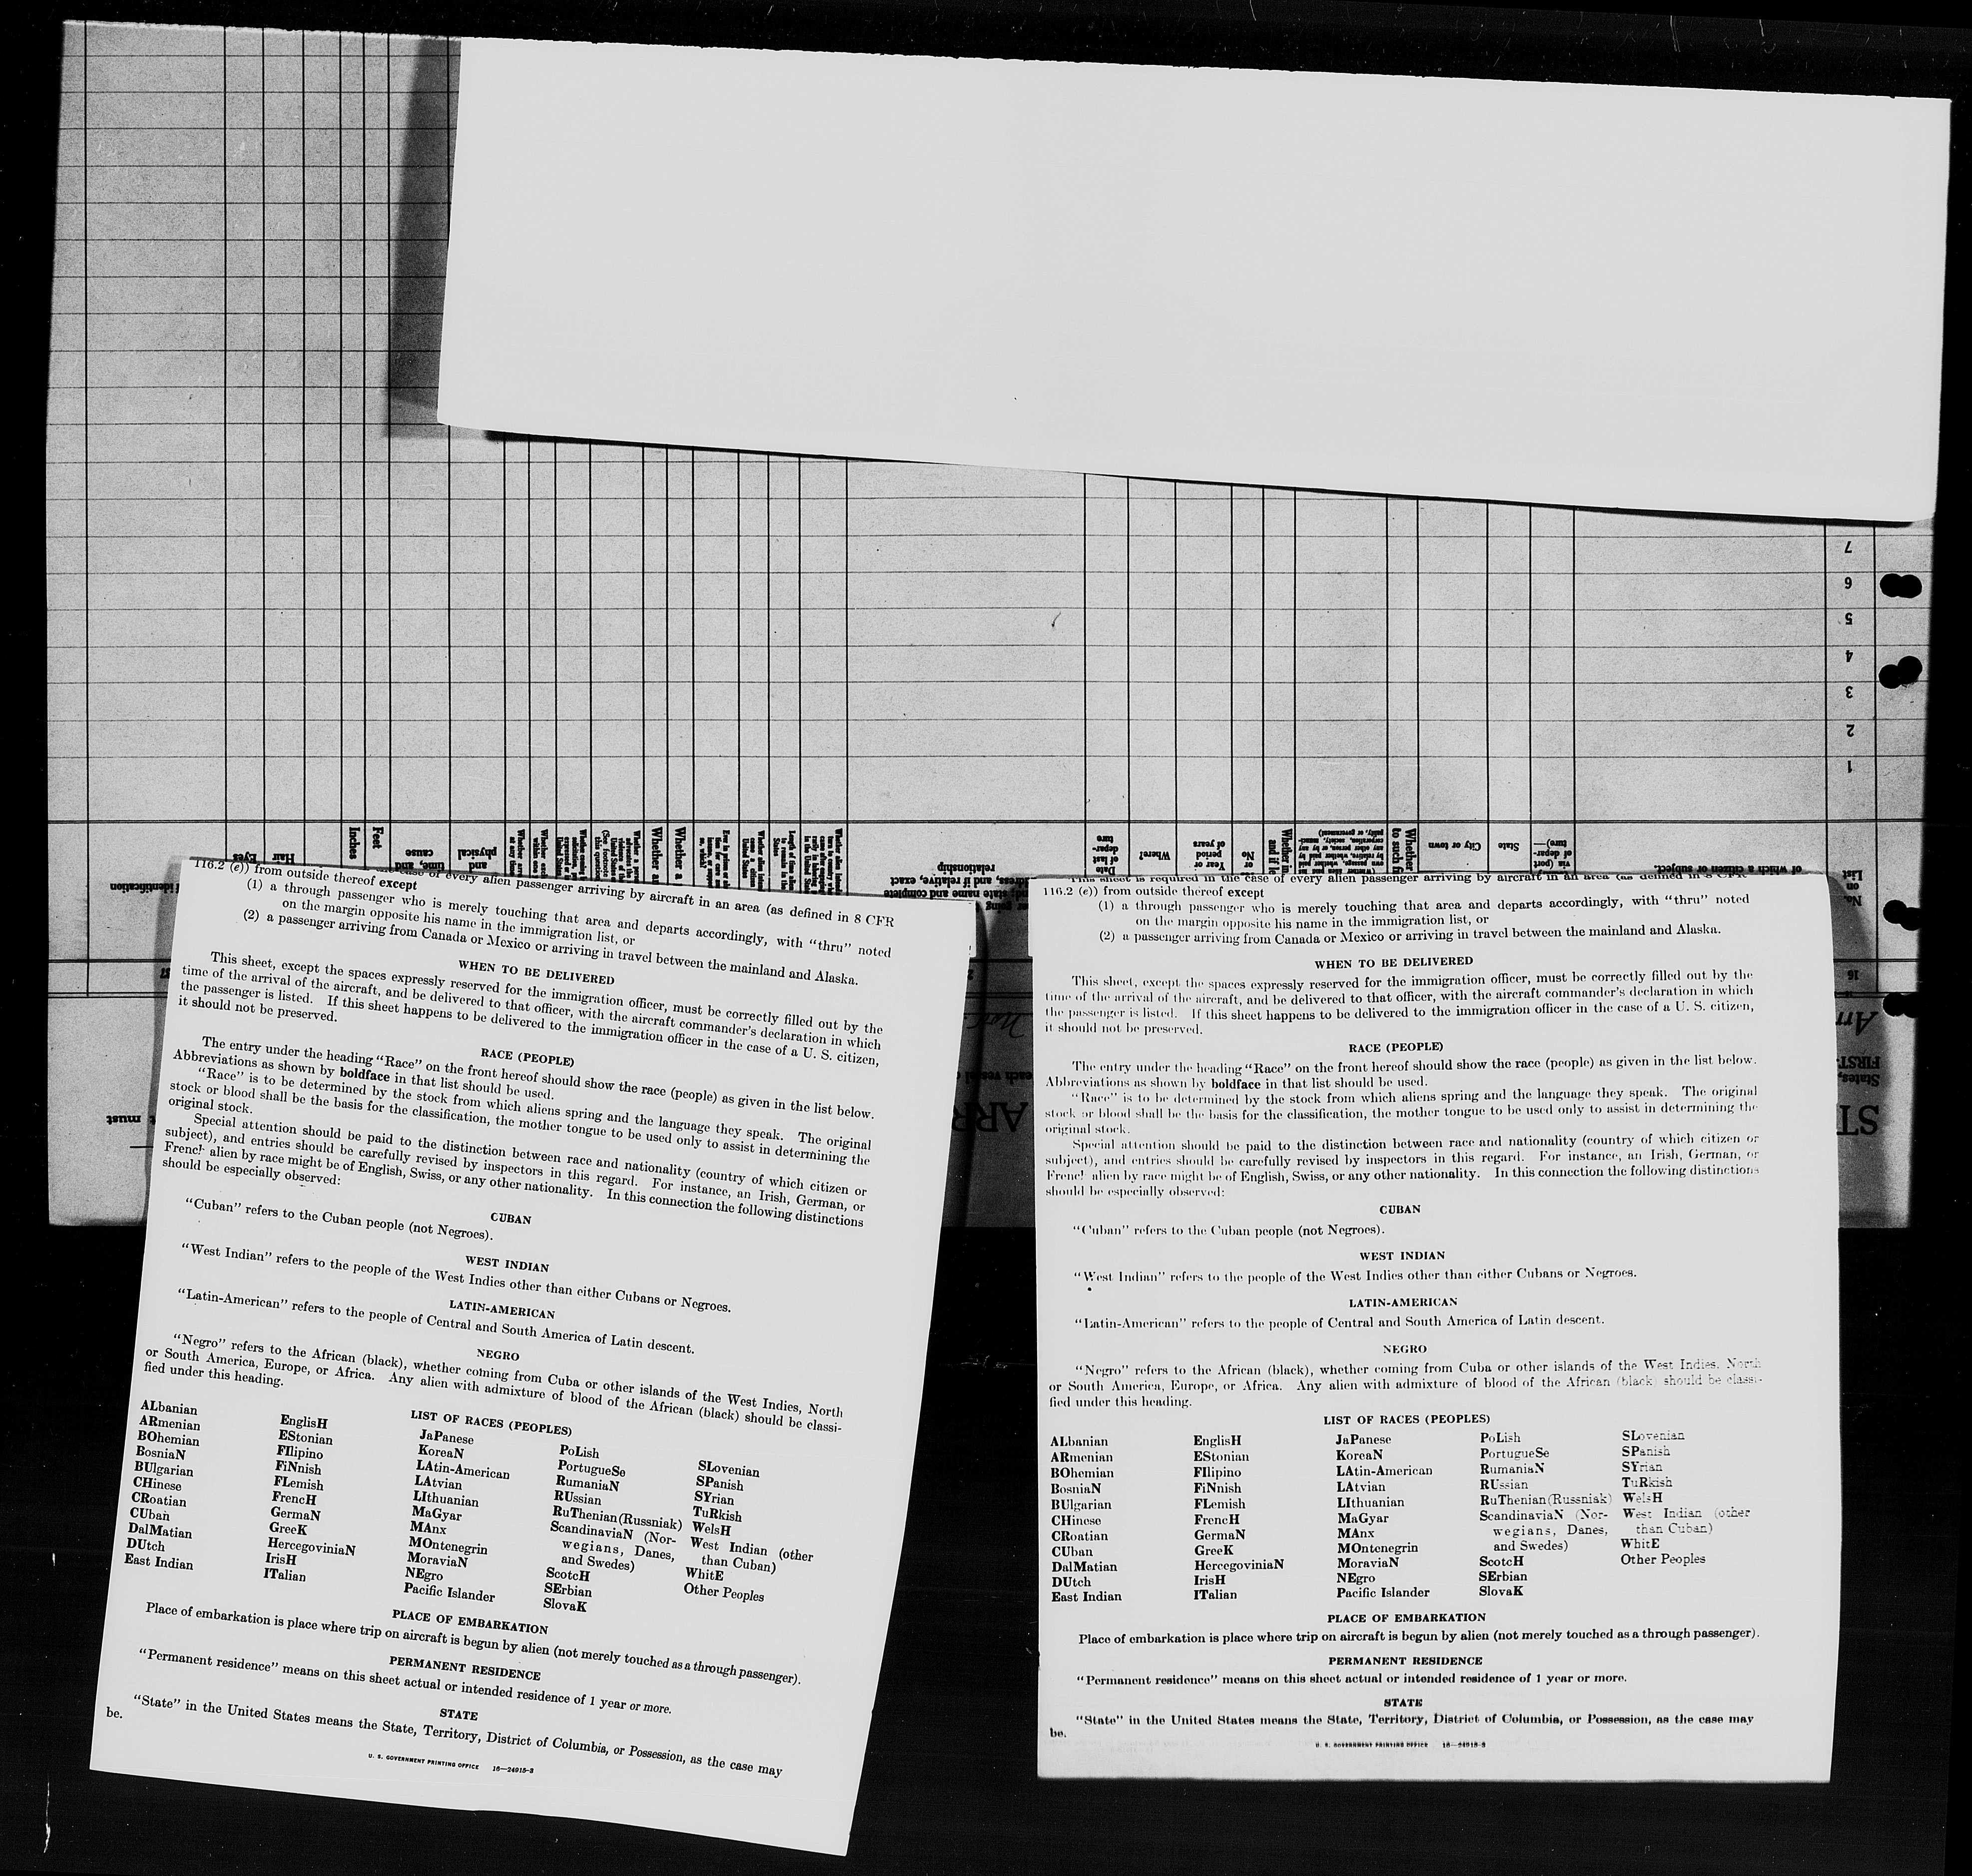 7
6
5
4
3
2
1
Eyes
Hair
Inches
Feet
time, and
cause
physical
and
relationship
Date
of last
depar-
ture
Where?
Year or
period
of years
No
or
Whether
to such
City or town
State
via
(port
of depar-
ture)—
of which a citizen or subject.
No.
on
List
16
identification
must
116.2 (e)) from outside thereof except
case of every alien passenger arriving by aircraft in an area (as defined in 8 CFR
(1) a through passenger who is merely touching that area and departs accordingly, with “thru” noted
on the margin opposite his name in the immigration list, or
(2) a passenger arriving from Canada or Mexico or arriving in travel between the mainland and Alaska.
WHEN TO BE DELIVERED
This sheet, except the spaces expressly reserved for the immigration officer, must be correctly filled out by the
time of the arrival of the aircraft, and be delivered to that officer, with the aircraft commander’s declaration in which
the passenger is listed. If this sheet happens to be delivered to the immigration officer in the case of a U. S. citizen,
it should not be preserved.
RACE (PEOPLE)
The entry under the heading “Race” on the front hereof should show the race (people) as given in the list below.
Abbreviations as shown by boldface in that list should be used.
“Race” is to be determined by the stock from which aliens spring and the language they speak. The original
stock or blood shall be the basis for the classification, the mother tongue to be used only to assist in determining the
original stock.
Special attention should be paid to the distinction between race and nationality (country of which citizen or
subject), and entries should be carefully revised by inspectors in this regard. For instance, an Irish, German, or
French alien by race might be of English, Swiss, or any other nationality. In this connection the following distinctions
should be especially observed:
CUBAN
“Cuban” refers to the Cuban people (not Negroes).
WEST INDIAN
“West Indian” refers to the people of the West Indies other than either Cubans or Negroes.
LATIN-AMERICAN
“Latin-American” refers to the people of Central and South America of Latin descent.
NEGRO
“Negro” refers to the African (black), whether coming from Cuba or other islands of the West Indies, North
or South America, Europe, or Africa. Any alien with admixture of blood of the African (black) should be classi-
fied under this heading.
LIST OF RACES (PEOPLES)
ALbanian
ARmenian
BOhemian
BosniaN
BUlgarian
CHinese
CRoatian
CUban
DalMatian
DUtch
East Indian
EnglisH
EStonian
FIlipino
FiNnish
FLemish
FrencH
GermaN
GreeK
HercegoviniaN
IrisH
ITalian
JaPanese
KoreaN
LAtin-American
LAtvian
LIthuanian
MaGyar
MAnx
MOntenegrin
MoraviaN
NEgro
Pacific Islander
PoLish
PortugueSe
RumaniaN
RUssian
RuThenian (Russniak)
ScandinaviaN (Nor-
wegians, Danes,
and Swedes)
ScotcH
SErbian
SlovaK
SLovenian
SPanish
SYrian
TuRkish
WelsH
West Indian (other
than Cuban)
WhitE
Other Peoples
PLACE OF EMBARKATION
Place of embarkation is place where trip on aircraft is begun by alien (not merely touched as a through passenger).
PERMANENT RESIDENCE
“Permanent residence” means on this sheet actual or intended residence of 1 year or more.
STATE
“State” in the United States means the State, Territory, District of Columbia, or Possession, as the case may
be.
U. S. GOVERNMENT PRINTING OFFICE 16—24915-3
This sheet is required in the case of every alien passenger arriving by aircraft in an area (as defined in 8 CFR
116.2 (e)) from outside thereof except
(1) a through passenger who is merely touching that area and departs accordingly, with “thru” noted
on the margin opposite his name in the immigration list, or
(2) a passenger arriving from Canada or Mexico or arriving in travel between the mainland and Alaska.
WHEN TO BE DELIVERED
This sheet, except the spaces expressly reserved for the immigration officer, must be correctly filled out by the
time of the arrival of the aircraft, and be delivered to that officer, with the aircraft commander’s declaration in which
the passenger is listed. If this sheet happens to be delivered to the immigration officer in the case of a U. S. citizen,
it should not be preserved.
RACE (PEOPLE)
The entry under the heading “Race” on the front hereof should show the race (people) as given in the list below.
Abbreviations as shown by boldface in that list should be used.
“Race” is to be determined by the stock from which aliens spring and the language they speak. The original
stock or blood shall be the basis for the classification, the mother tongue to be used only to assist in determining the
original stock.
Special attention should be paid to the distinction between race and nationality (country of which citizen or
subject), and entries should be carefully revised by inspectors in this regard. For instance, an Irish, German, or
French alien by race might be of English, Swiss, or any other nationality. In this connection the following distinctions
should be especially observed:
CUBAN
“Cuban” refers to the Cuban people (not Negroes).
WEST INDIAN
“West Indian” refers to the people of the West Indies other than either Cubans or Negroes.
LATIN-AMERICAN
“Latin-American” refers to the people of Central and South America of Latin descent.
NEGRO
“Negro” refers to the African (black), whether coming from Cuba or other islands of the West Indies, North
or South America, Europe, or Africa. Any alien with admixture of blood of the African (black) should be classi-
fied under this heading.
LIST OF RACES (PEOPLES)
ALbanian
ARmenian
BOhemian
BosniaN
BUlgarian
CHinese
CRoatian
CUban
DalMatian
DUtch
East Indian
EnglisH
EStonian
FIlipino
FiNnish
FLemish
FrencH
GermaN
GreeK
HercegoviniaN
IrisH
ITalian
JaPanese
KoreaN
LAtin-American
LAtvian
LIthuanian
MaGyar
MAnx
MOntenegrin
MoraviaN
NEgro
Pacific Islander
PoLish
PortugueSe
RumaniaN
RUssian
RuThenian (Russniak)
ScandinaviaN (Nor-
wegians, Danes,
and Swedes)
ScotcH
SErbian
SlovaK
SLovenian
SPanish
SYrian
TuRkish
WelsH
West Indian (other
than Cuban)
WhitE
Other Peoples
PLACE OF EMBARKATION
Place of embarkation is place where trip on aircraft is begun by alien (not merely touched as a through passenger).
PERMANENT RESIDENCE
“Permanent residence” means on this sheet actual or intended residence of 1 year or more.
STATE
“State” in the United States means the State, Territory, District of Columbia, or Possession, as the case may
be.
U. S. GOVERNMENT PRINTING OFFICE 16—24915-3